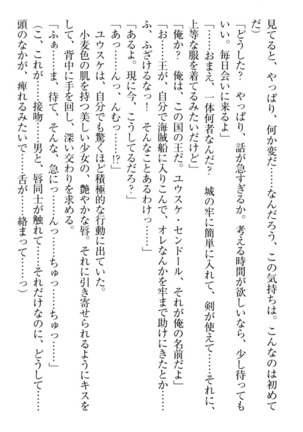 見てると、やっぱり、何か変だ……なんだろう、この気持ちは。こんなのは初めて
だ）
「どうした？　やっぱり、話が急すぎるか。考える時間が欲しいなら、少し待っても
いい。毎日会いに来るよ」
「おまえ、一体何者なんだ？　城の牢に簡単に入れて、剣が使えて……それに、
上等な服を着てるみたいだけど」
「俺か？　俺は、この国の王だ。ユウスケ・センドール、それが俺の名前だよ」
「お……王が、自分で海賊船に入りこんで、オレなんかを牢まで助けにきたとか……
ふ、ふざけるなっ！　そんなことあるわけっ……」
「あるよ。現に今、こうしてるだろ？」
「あっ……んっ、んむっ……!?」
ユウスケは、自分でも驚くほど積極的な行動に出ていた。
小麦色の肌を持つ美しい少女の、艶やかな唇。それに引き寄せられるようにキスを
して、背中に手を回し、深い交わりを求める。
「ふぁ……ま、待て、そんな、急にっ……んっ……ちゅっ……ちゅっ……」
（こ、これが……接吻……男と、唇同士が触れて……それだけなのに、どうして……
頭のなかが、痺れるみたいで……舌が……絡まって……っ）